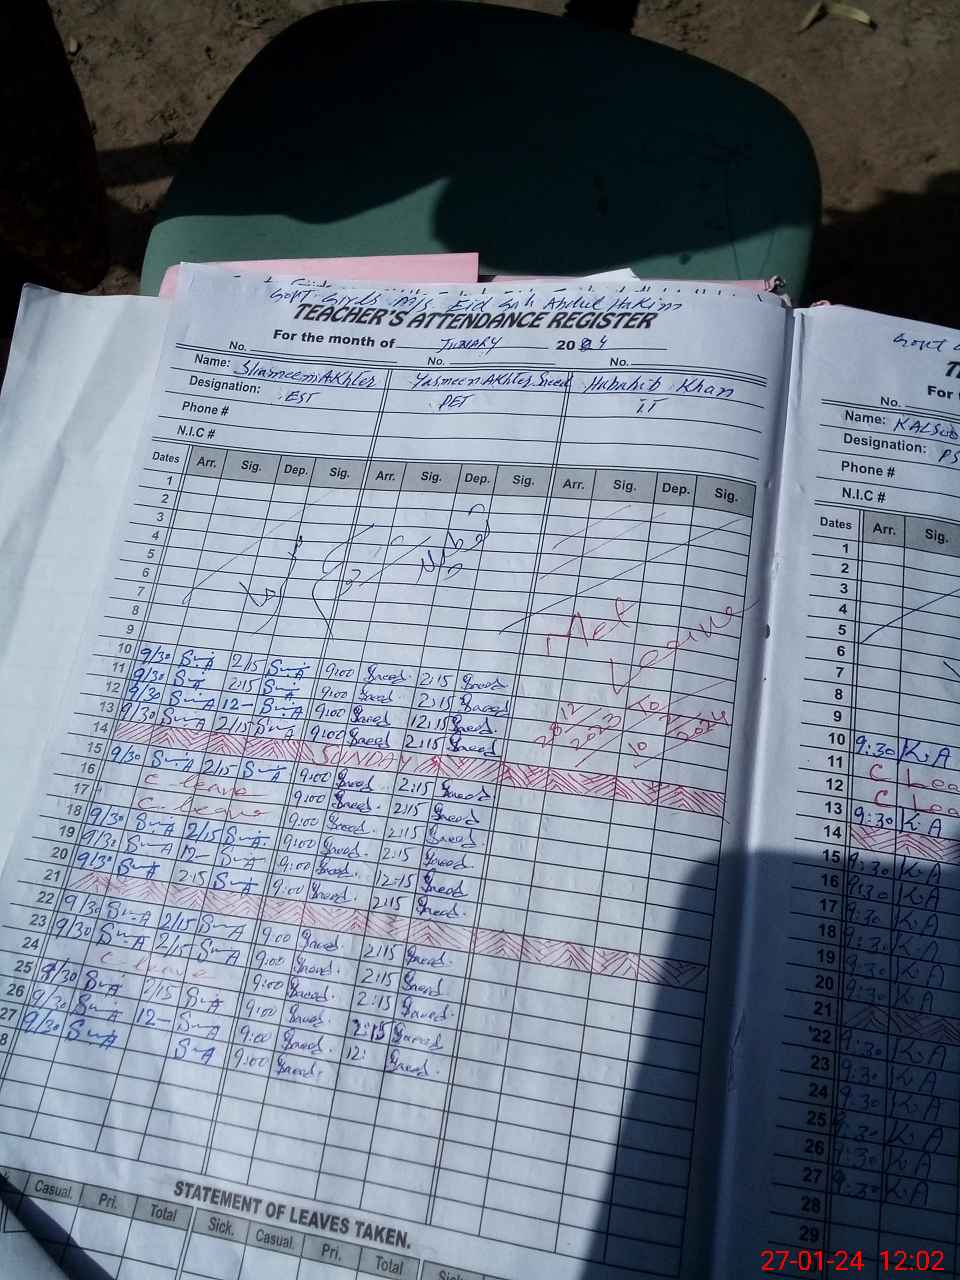 Govt. Girls M/S Eid Gah Abdul Hakim
TEACHER'S ATTENDANCE REGISTER
For the month of JUNARY 2024
No. No. No.
Name: Shameem Akhter Yasmeen Akhter Saeed Khan
Designation: EST PET IT
Phone #
N.I.C #
Dates Arr. Sig. Dep. Sig. Arr. Sig. Dep. Sig. Arr. Sig. Dep. Sig.
1
2
3
4
5
6
7
8
9
10 9/30 SmA 2/15 SmA 9:00 Saeed. 2:15 Saeed
11 9/30 SmA 2:15 SmA 9:00 Saeed 2:15 Saeed
12 9/30 SmA 12- SmA 9:00 Saeed 12:15 Saeed
13 9/30 SmA 2/15 SmA 9:00 Saeed 2:15 Saeed
Leave
12 2023 To 2 10 2024
14 SUNDAY
15 9/30 SmA 2/15 SmA 9:00 Saeed 2:15 Saeed
16 C leave 9:00 Saeed 2:15 Saeed
17 C-leave 9:00 Saeed. 2:15 Saeed
18 9/30 SmA 2/15 SmA 9:00 Saeed. 2:15 Saeed
19 9/30 SmA 12- SmA 9:00 Saeed. 12:15 Saeed
20 9/30 SmA 2:15 SmA 9:00 Saeed. 2:15 Saeed.
21
22 9/30 SmA 2/15 SmA 9:00 Saeed. 2:15 Saeed.
23 9/30 SmA 2/15 SmA 9:00 Saeed. 2:15 Saeed
24 C-leave 9:00 Saeed. 2:15 Saeed.
25 9/30 SmA 2/15 SmA 9:00 Saeed. 2:15 Saeed
26 9/30 SmA 12- SmA 9:00 Saeed. 12: Saeed.
27 9/30 SmA SmA
8
STATEMENT OF LEAVES TAKEN.
Casual. Pri. Total Sick. Casual. Pri. Total Sick
Govt
For
No.
Name:
Designation: PS
Phone #
N.I.C #
Dates Arr. Sig.
1
2
3
4
5
6
7
8
9
10 9:30 K.A
11 C Lea
12 C Lea
13 9:30 K.A
14
15 9:30 K.A
16 9:30 K.A
17 9:30 K.A
18 9:30 K.A
19 9:30 K.A
20 9:30 K.A
21
22 9:30 K.A
23 9:30 K.A
24 9:30 K.A
25 9:30 K.A
26 9:30 K.A
27 9:30 K.A
28
29
27-01-24 12:02